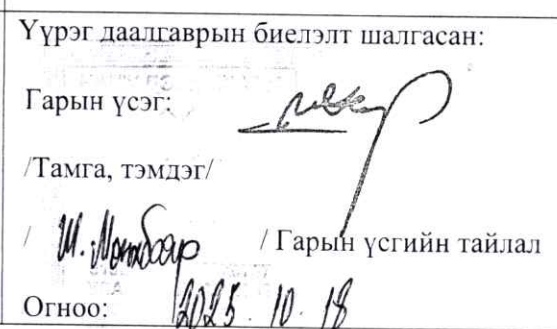 Үүрэг даалгаврын биелэлт шалгасан:
Гарын үсэг:
/Тамга, тэмдэг/
/ Ш. Мөнхбаяр / Гарын үсгийн тайлал
Огноо: 2025. 10. 18